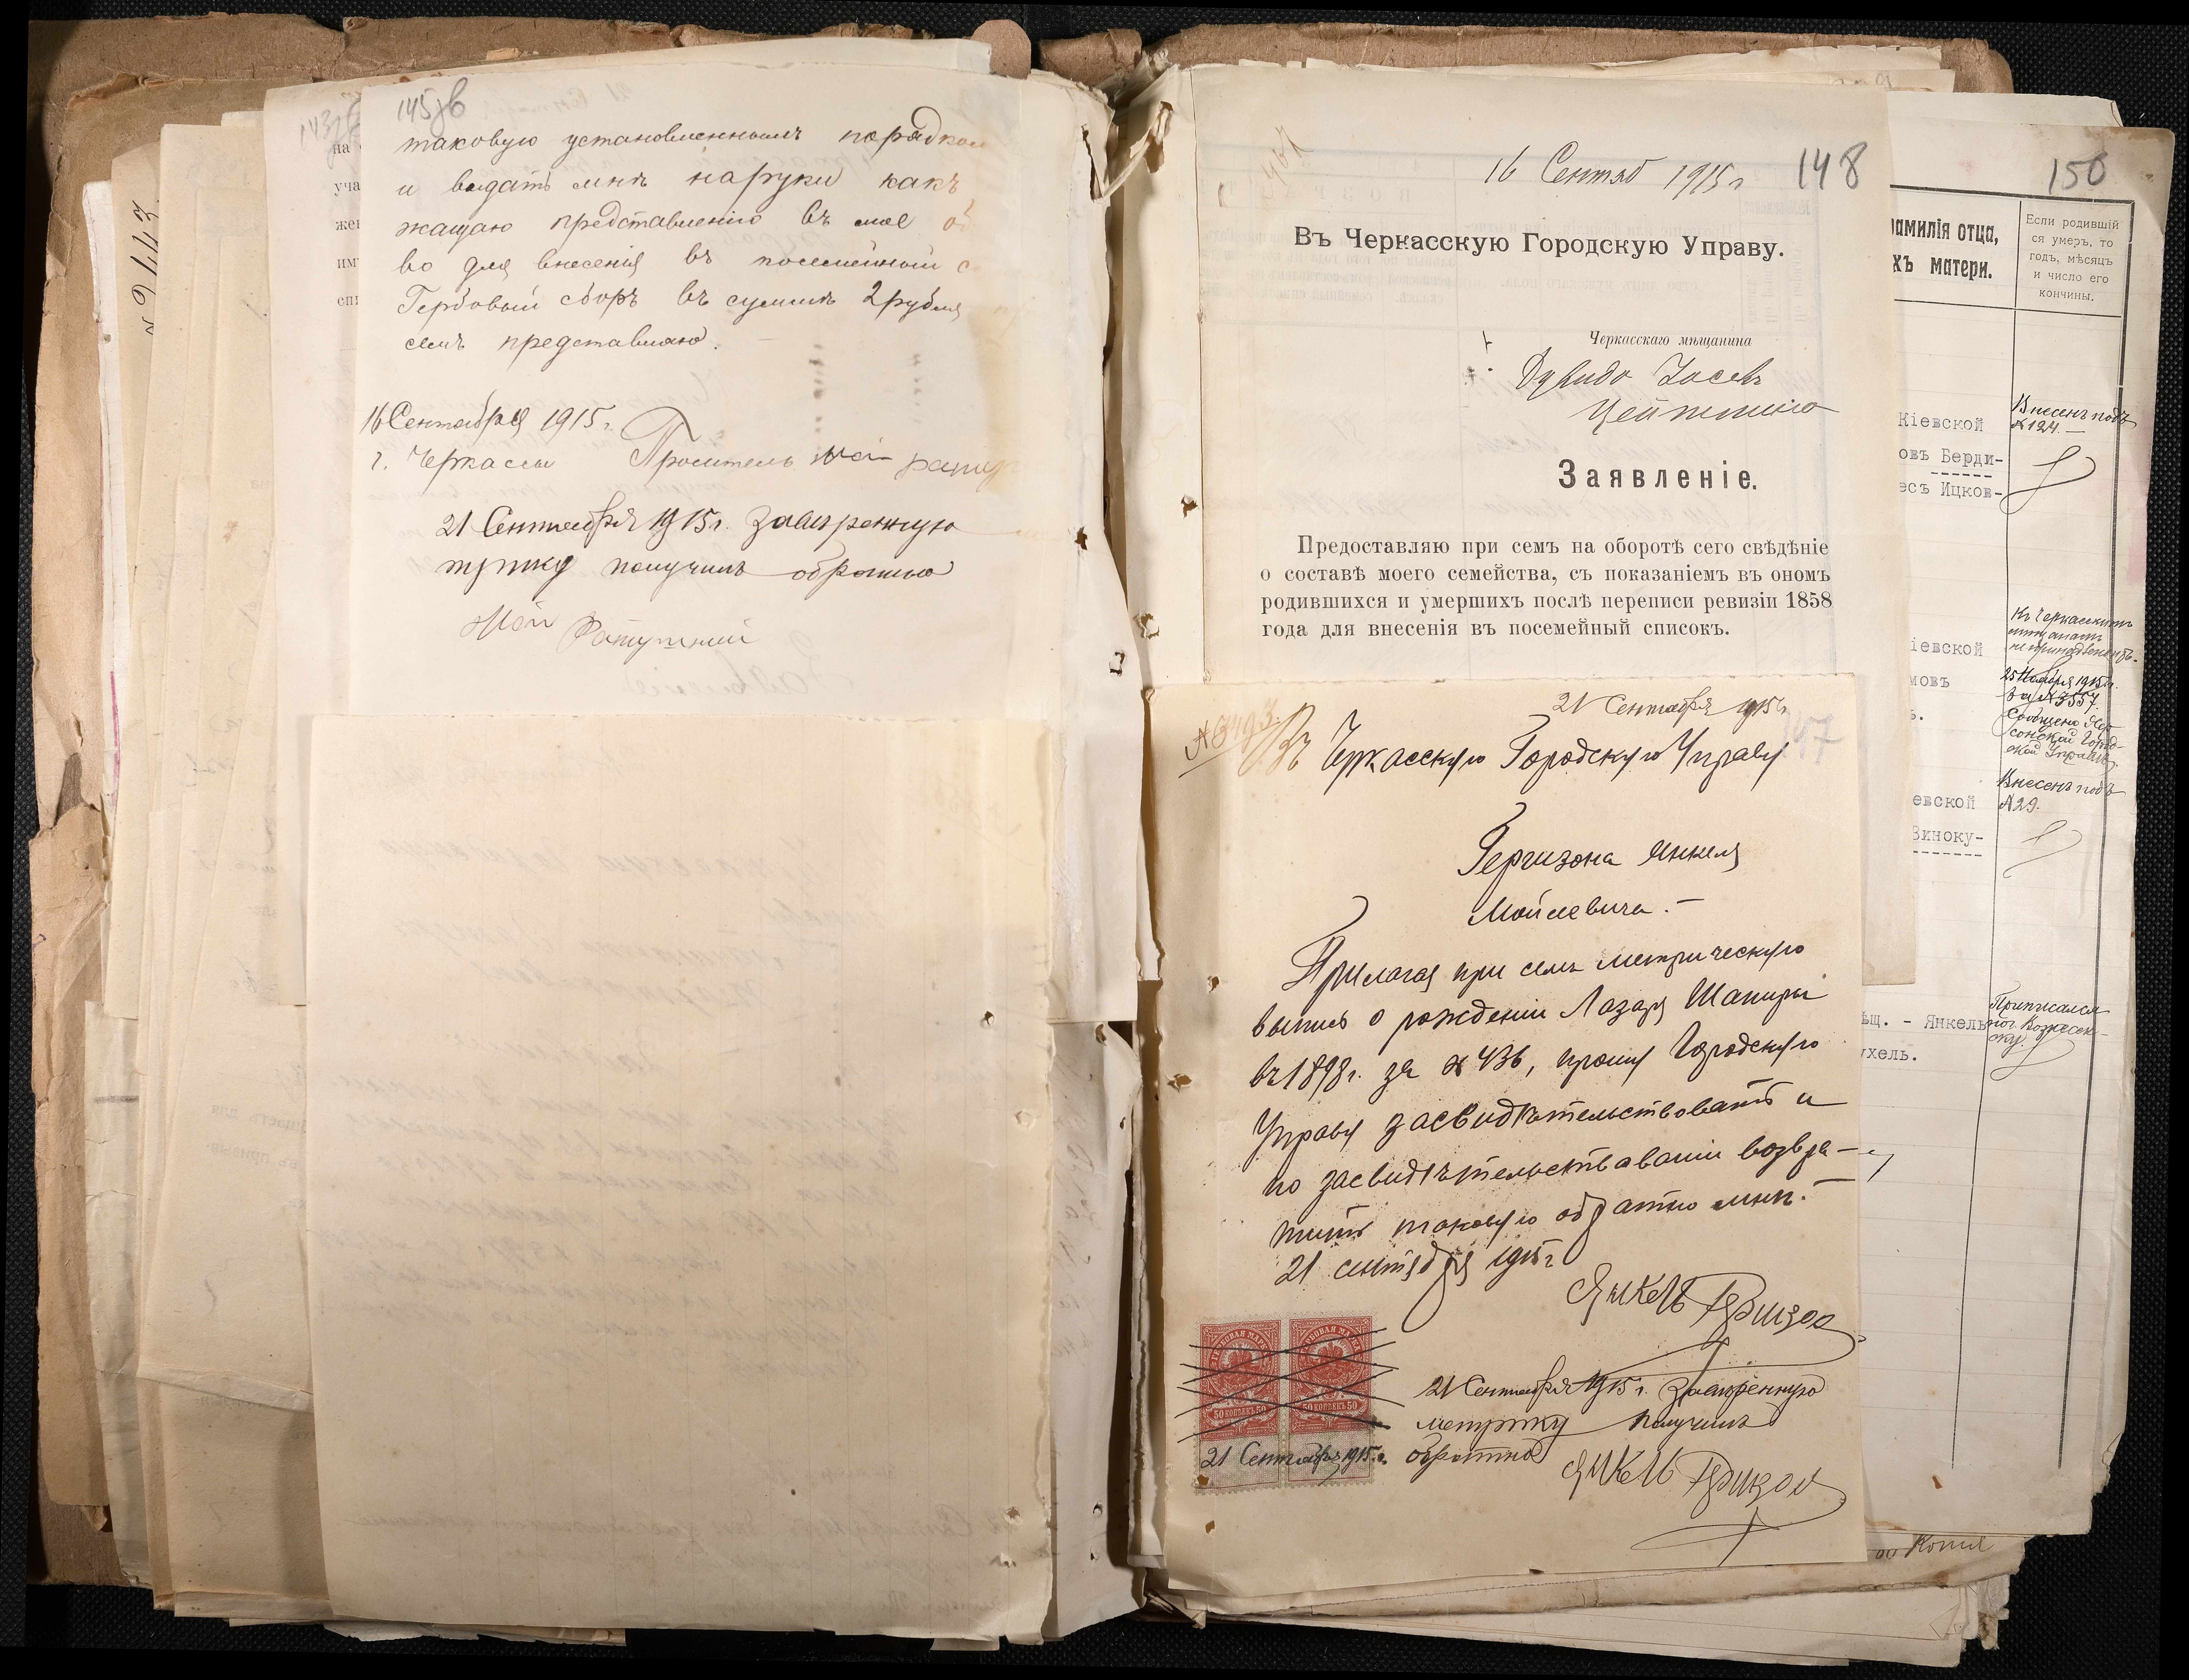 145об
таковую установленнымъ порядком
и выдать мнѣ на руки какъ
жащаю представленію въ мое об
во для внесенія въ посемейный с
Гербовый сборъ въ суммѣ 2 рубля
семъ представляю.
16 Сентября 1915 г.
г. Черкассы Проситель
21 Сентября 1915 г. Заверенную
получилъ обратно
№ 9443
143об
на
уча
жен
им
спи
16 Сентяб 1915 г 148
Въ Черкасскую Городскую Управу.
Черкасскаго мѣщанина
Заявленіе.
Предоставляю при семъ на оборотѣ сего свѣдѣніе
о составѣ моего семейства, съ показаніемъ въ ономъ
родившихся и умершихъ послѣ переписи ревизіи 1858
года для внесенія въ посемейный списокъ.
21 Сентября 1915 г. 147
Въ Черкасскую Городскую Управу
Гершзона Янкеля
Мойсевича.-
Прилагая при семъ метрическую
выпись о рожденіи Лазаря Шапиры
въ 1898 г. за № 436, прошу Городскую
Управу засвидѣтельствовать и
по засвидѣтельствованіи возвра-
тить таковую обратно мнѣ.-
21 сентября 1915 г
Янкель
ГЕРБОВАЯ МАРКА ГЕРБОВАЯ МАРКА
50 КОПѢЕКЪ 50 50 КОПѢЕКЪ 50
21 Сентября 1915 г.
21 Сентября 1915 г. Заверенную
метрику получилъ
обратно
Янкель
150
фамилія отца,
хъ матери.
Если родившій
ся умеръ, то
годъ, мѣсяцъ
и число его
кончины.
Кіевской
овъ Берди-
есъ Ицков-
Внесенъ подъ
№ 124.-
іевской
мовъ
ь.
Къ Черкасскимъ
мѣщанамъ
25 Ноября 1915 г.
за № 3557.
Сообщено Хер-
сонской Город-
ской Управѣ
евской
Виноку-
Внесенъ подъ
№ 29.
ѣщ. - Янкель
ухель.
Приписался
Копія